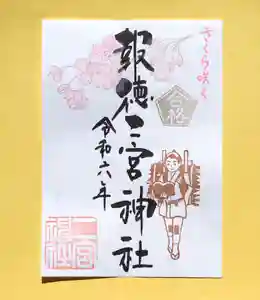 さくら咲く
合格
報徳二宮神社
令和六年
二宮
神社